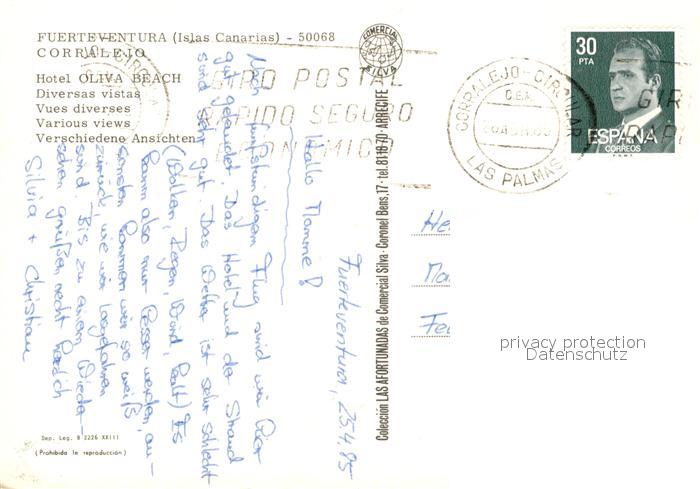 FUERTEVENTURA (Islas Canarias) - 50068
CORRALEJO
Hotel OLIVA BEACH
Diversas vistas
Vues diverses
Various views
Verschiedene Ansichten
COMERCIAL
SILVA
GIRO POSTAL
RAPIDO SEGURO
ECONOMICO
CORRALEJO-CIRCULAR
LAS PALMAS
30
PTA
ESPAÑA
CORREOS
F.N.M.T.
GIR
Colección LAS AFORTUNADAS de Comercial Silva - Coronel Bens, 17 - tel. 811870 - ARRECIFE
Fuerteventura, 25.4.85
Hallo Mamme!
Nach fünfstündigem Flug sind wir hier
gut gelandet. Das Hotel und der Strand
sind sehr gut. Das Wetter ist sehr schlecht
(Wolken, Regen, Wind, kalt) Es
kann also nur besser werden, an-
sonsten kommen wir so weiß
zurück, wie wir losgefahren
sind. Bis zu einem Wieder-
sehen grüßen recht herzlich
Silvia + Christian
He
Ma
privacy protection
Datenschutz
Dep. Leg. B 2226 XXIII
(Prohibida la reproducción)